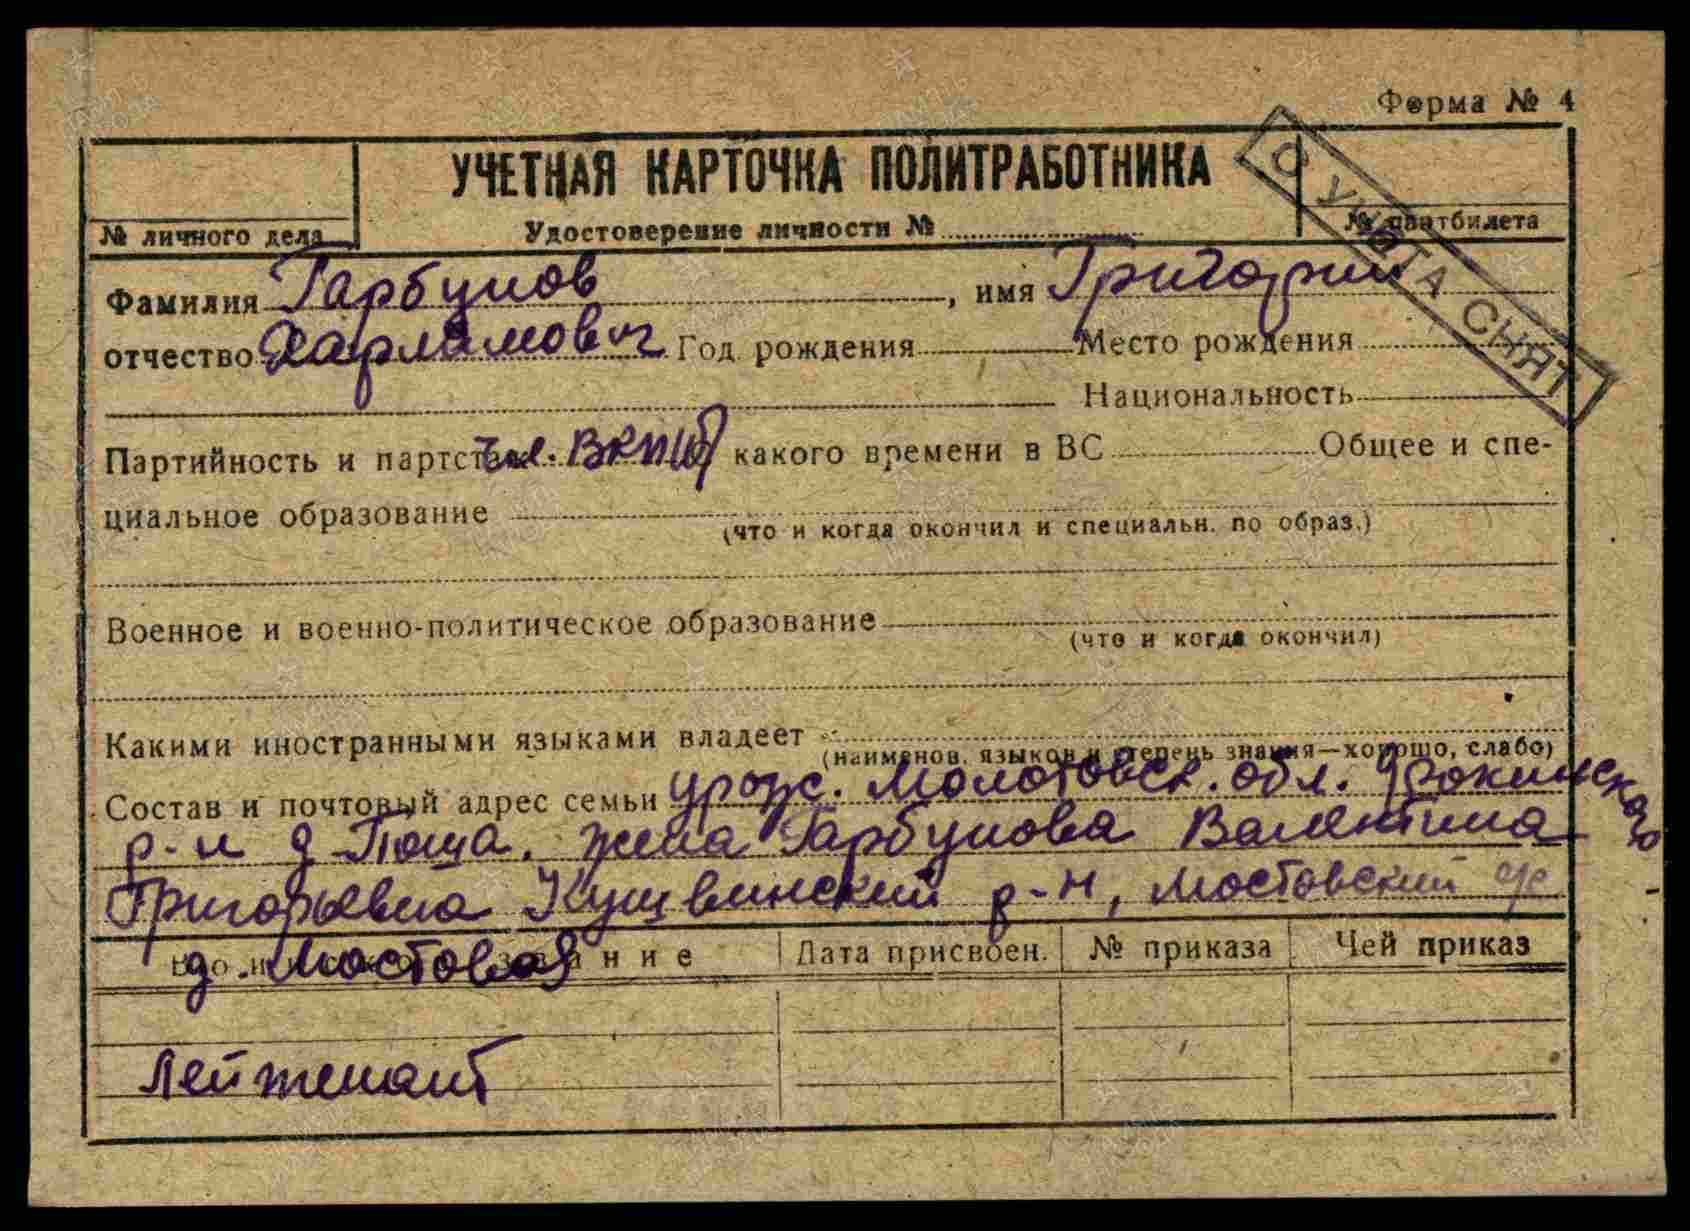 Форма № 4
УЧЕТНАЯ КАРТОЧКА ПОЛИТРАБОТНИКА
С УЧЕТА СНЯТ
№ личного дела Удостоверение личности № № партбилета
Фамилия Гарбунов, имя Григорий
отчество Харламович Год рождения Место рождения
Национальность
Партийность и партстаж чл. ВКП(б) какого времени в ВС Общее и спе-
циальное образование
(что и когда окончил и специальн. по образ.)
Военное и военно-политическое образование
(что и когда окончил)
Какими иностранными языками владеет
(наименов. языков и степень знания—хорошо, слабо)
Состав и почтовый адрес семьи урож. Молотовск. обл.
р-н д. жена Гарбунова Валентина
Григорьевна Кущвинский р-н, Мостовский с/с
д. Мостовая
Военное звание Дата присвоен. № приказа Чей приказ
Лейтенант